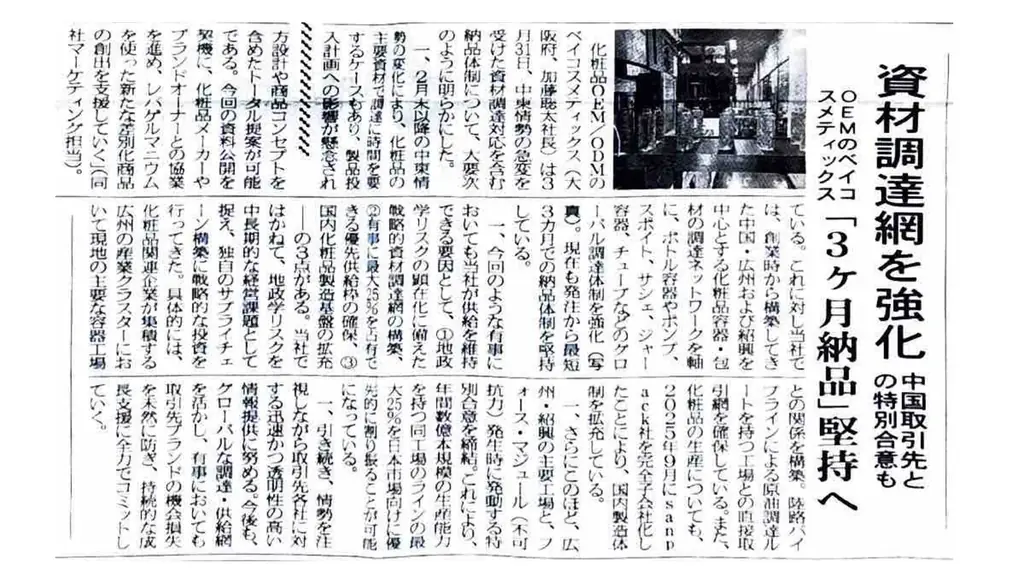 資材調達網を強化
中国取引先と
の特別合意も
OEMのベイコ
スメティックス
「3ヶ月納品」堅持へ
化粧品OEM/ODMの
ベイコスメティックス(大
阪府、加藤聡太社長)は3
月31日、中東情勢の急変を
受けた資材調達対応を含む
納品体制について、大要次
のように明らかにした。
一、2月末以降の中東情
勢の変化により、化粧品の
主要資材で調達に時間を要
するケースもあり、製品投
入計画への影響が懸念され
ている。これに対し当社で
は、創業時から構築してき
た中国・広州および紹興を
中心とする化粧品容器・包
材の調達ネットワークを軸
に、ボトル容器やポンプ、
スポイト、サシェ、ジャー
容器、チューブなどのグロ
ーバル調達体制を強化(写
真)。現在も発注から最短
3カ月での納品体制を堅持
している。
一、今回のような有事に
おいても当社が供給を維持
できる要因として、①地政
学リスクの顕在化に備えた
戦略的資材調達網の構築、
②有事に最大25%を占有で
きる優先供給枠の確保、③
国内化粧品製造基盤の拡充
――の3点がある。当社で
はかねて、地政学リスクを
中長期的な経営課題として
捉え、独自のサプライチェ
ーン構築に戦略的な投資を
行ってきた。具体的には、
化粧品関連企業が集積する
広州の産業クラスターにお
いて現地の主要な容器工場
との関係を構築。陸路パイ
プラインによる原油調達ル
ートを持つ工場との直接取
引網を確保している。また、
化粧品の生産についても、
2025年9月にsanp
ack社を完全子会社化し
たことにより、国内製造体
制を拡充している。
一、さらにこのほど、広
州・紹興の主要工場と、フ
ォース・マジュール(不可
抗力)発生時に発動する特
別合意を締結。これにより、
年間数億本規模の生産能力
を持つ同工場のラインの最
大25%を日本市場向けに優
先的に割り振ることが可能
になっている。
一、引き続き、情勢を注
視しながら取引先各社に対
する迅速かつ透明性の高い
情報提供に努める。今後も、
グローバルな調達・供給網
を活かし、有事においても
取引先ブランドの機会損失
を未然に防ぎ、持続的な成
長支援に全力でコミットし
ていく。
方設計や商品コンセプトを
含めたトータル提案が可能
である。今回の資料公開を
契機に、化粧品メーカーや
ブランドオーナーとの協業
を進め、レパゲルマニウム
を使った新たな差別化商品
の創出を支援していく」(同
社マーケティング担当)。